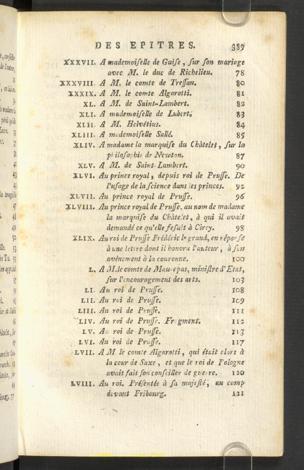 DES EPITRES. 387
XXXVII. A mademoiselle de Guise, sur son mariage
avec M. le duc de Richelieu. 78
XXXVIII. A M. le comte de Tressan. 80
XXXIX. A M. le comte Algarotti. 81
XL. A M. de Saint-Lambert. 82
XLI. A mademoiselle de Lubert. 83
XLII. A M. Helvétius. 84
XLIII. A mademoiselle Sallé. 85
XLIV. A madame la marquise du Châtelet, sur la
philosophie de Newton. 87
XLV. A M. de Saint-Lambert. 90
XLVI. Au prince royal, depuis roi de Prusse. De
l'usage de la science dans les princes. 92
XLVII. Au prince royal de Prusse. 96
XLVIII. Au prince royal de Prusse, au nom de madame
la marquise du Châtelet, à qui il avait
demandé ce qu'elle fesait à Cirey. 98
XLIX. Au roi de Prusse Frédéric le grand, en réponse
à une lettre dont il honora l'auteur, à son
avénement à la couronne. 100
L. A M. le comte de Maurepas, ministre d'Etat,
sur l'encouragement des arts. 103
LI. Au roi de Prusse. 108
LII. Au roi de Prusse. 109
LIII. Au roi de Prusse. 111
LIV. Au roi de Prusse. Fragment. 112
LV. Au roi de Prusse. 113
LVI. Au roi de Prusse. 117
LVII. A M le comte Algarotti, qui était alors à
la cour de Saxe, et que le roi de Pologne
avait fait son conseiller de guerre. 120
LVIII. Au roi. Présentée à sa majesté, au camp
devant Fribourg. 121